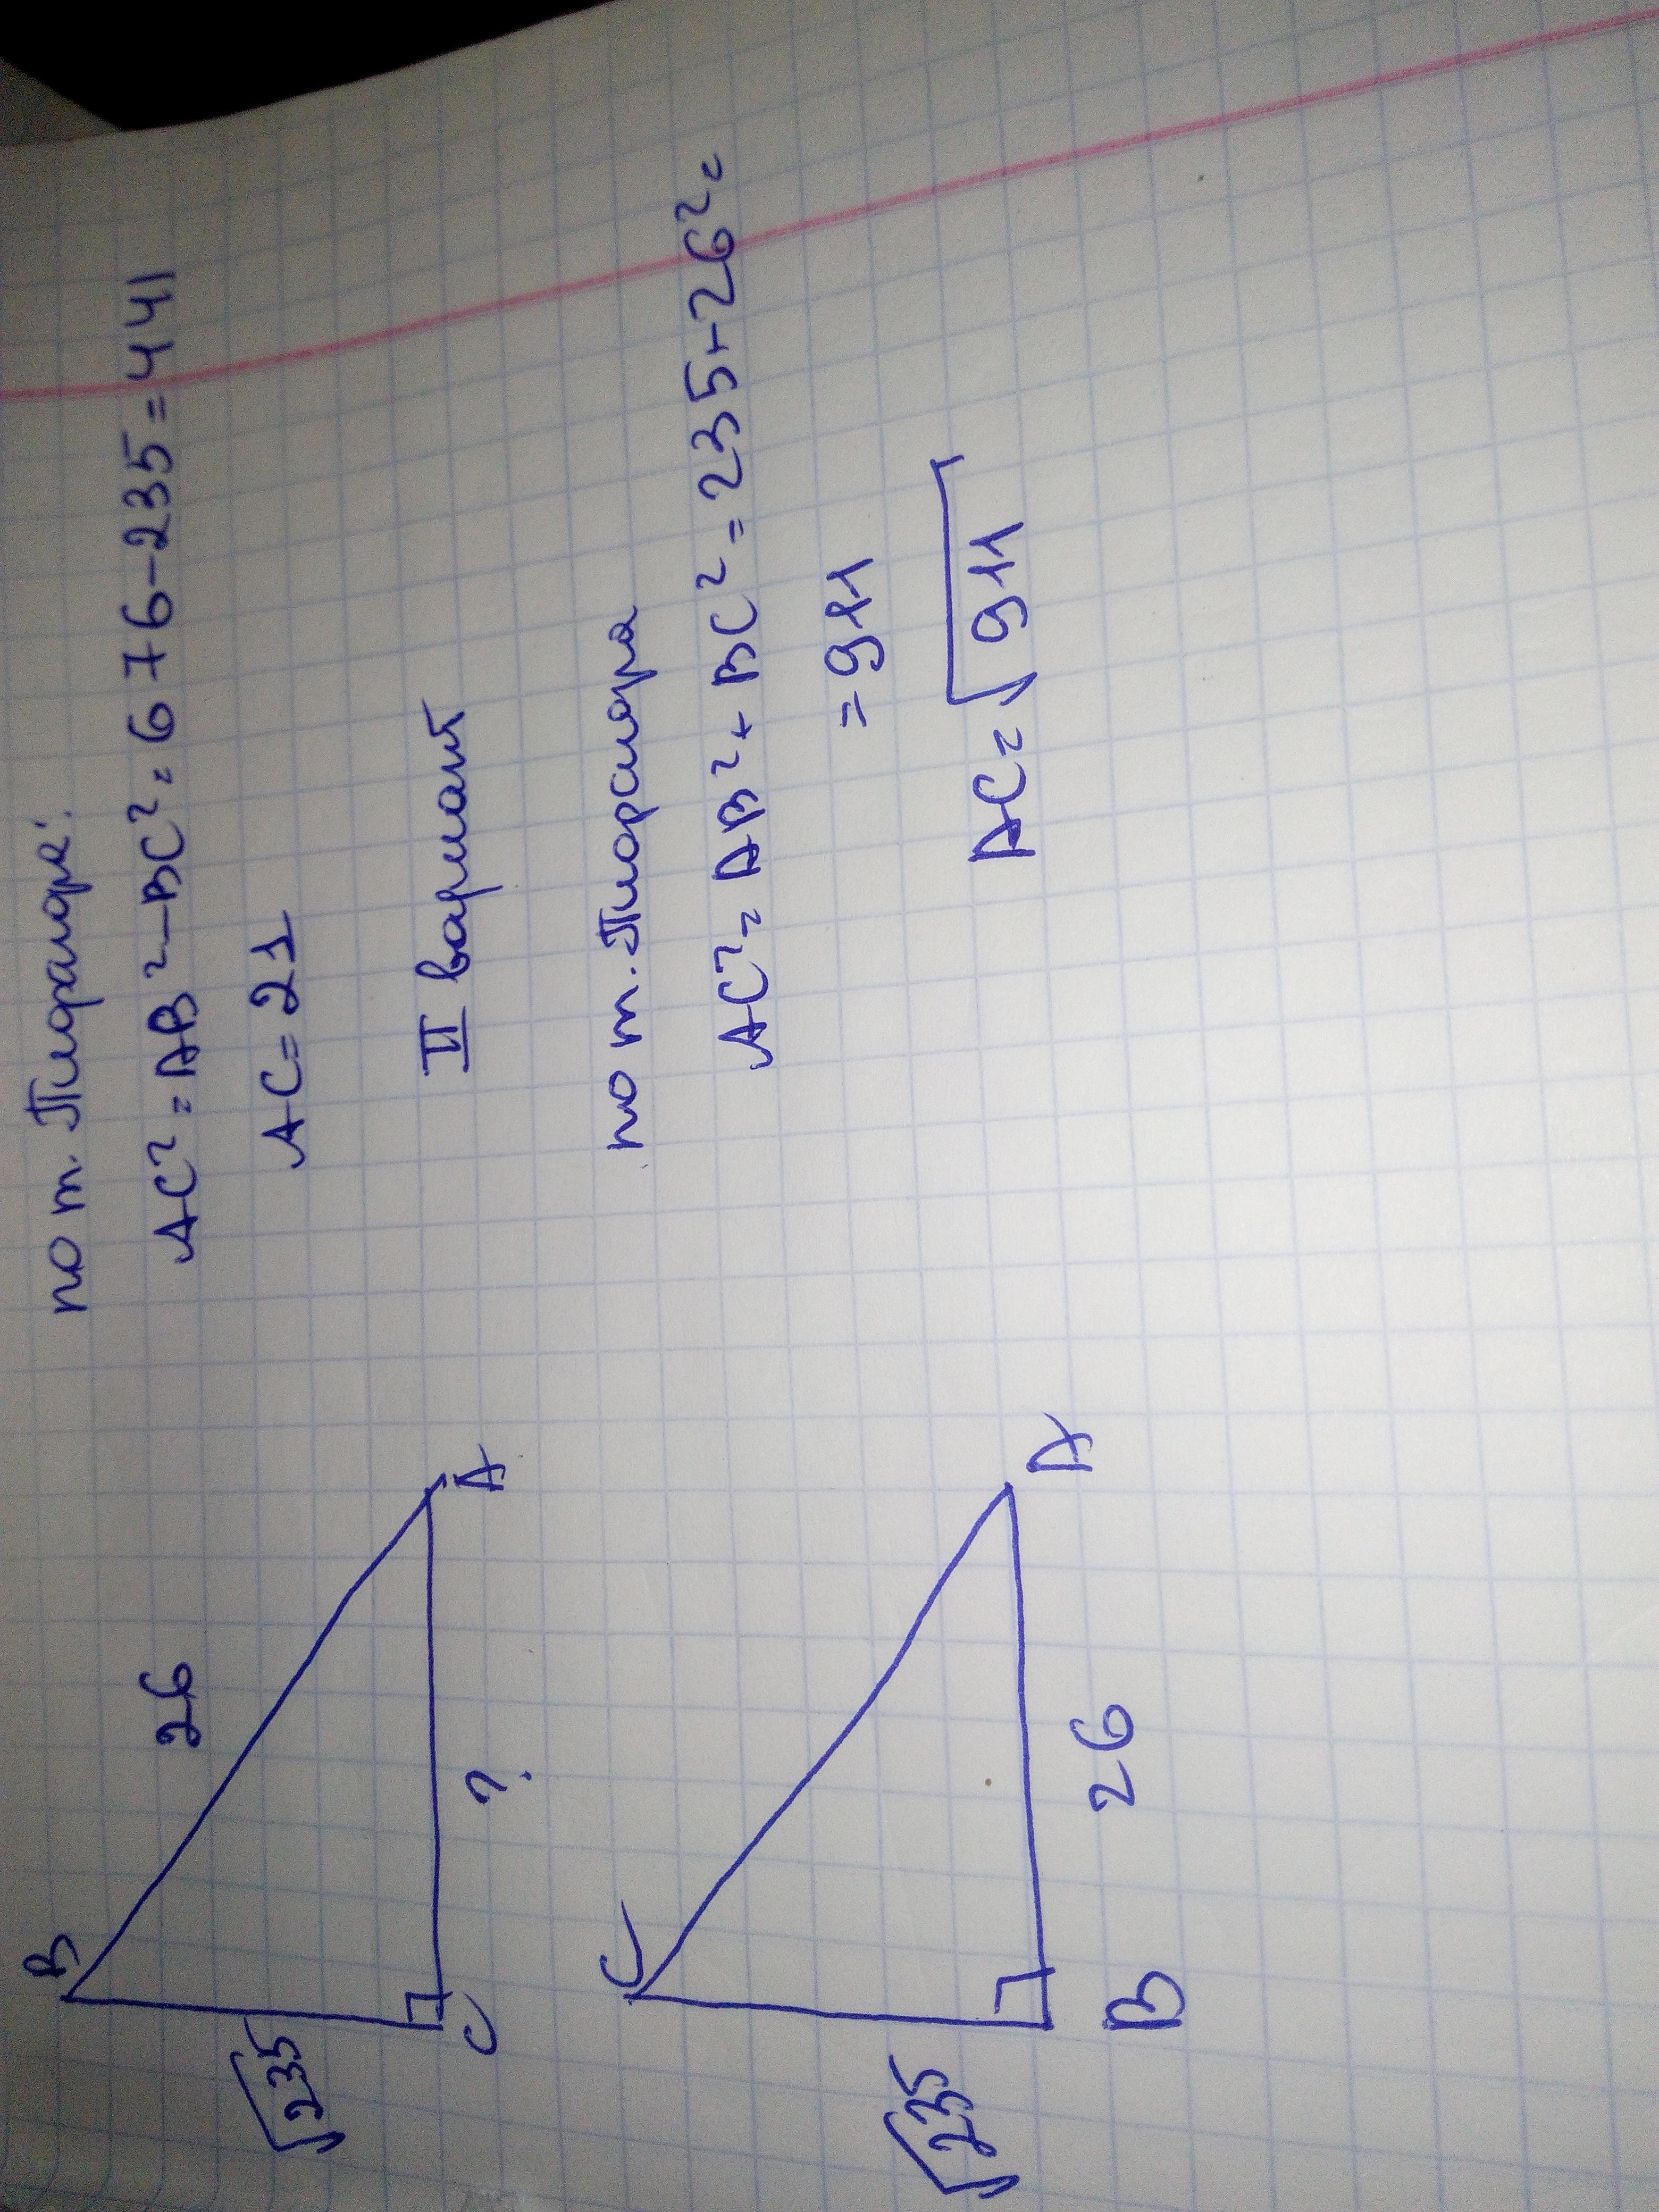 по т. Пифагора:
AC² = AB² – BC² = 676 - 235 = 441
AC = 21
B
26
√235
C
?
A
II вариант
по т. Пифагора
AC² = AB² + BC² = 235 + 26² =
= 911
AC = √911
C
√235
B
26
A